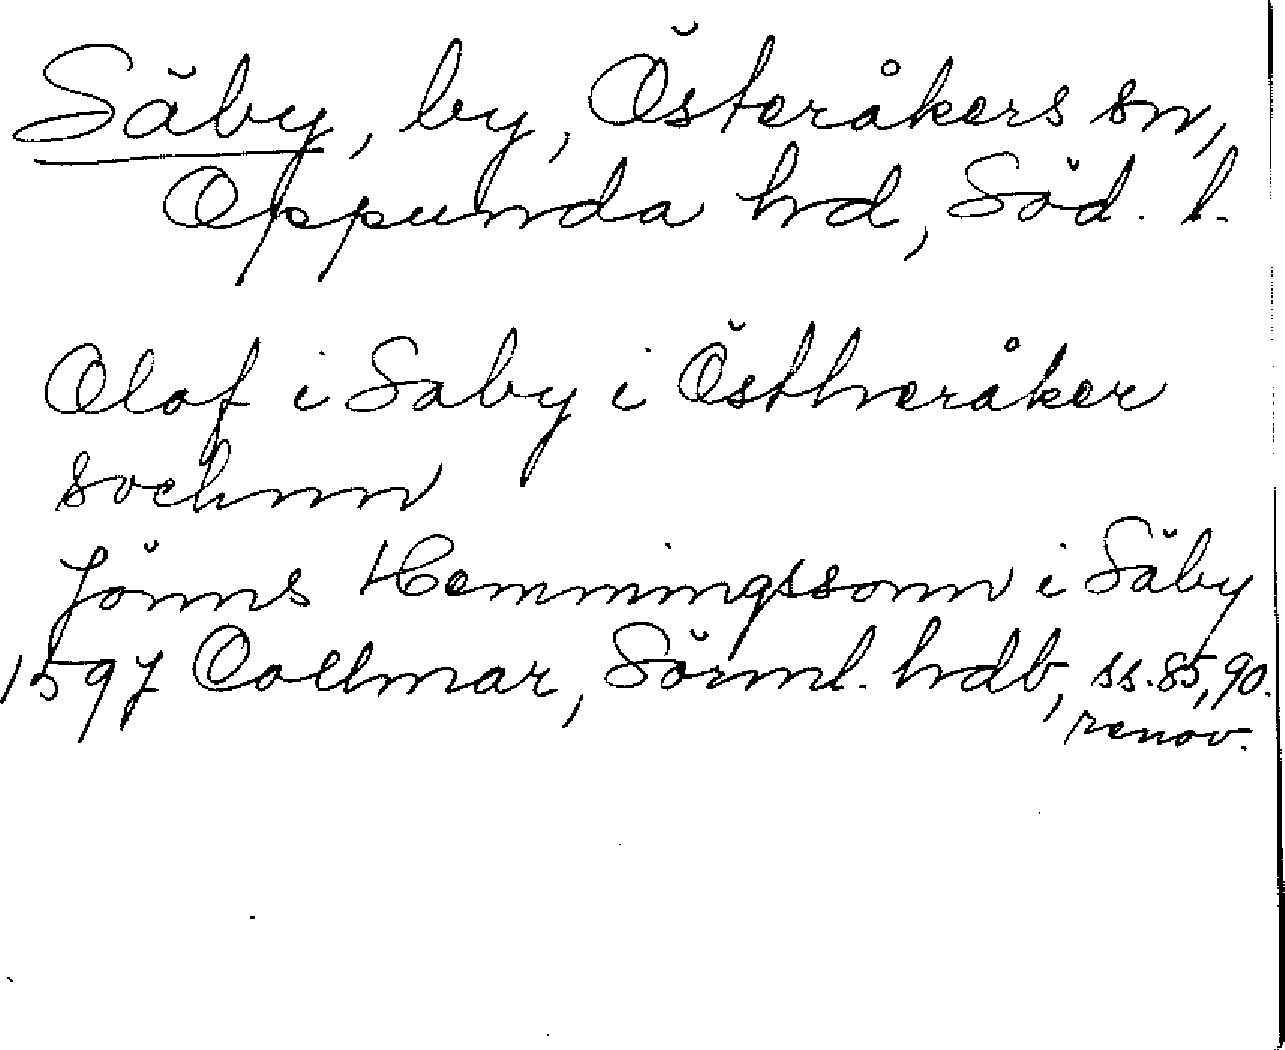 Säby, by, Österåkers sn,
Oppunda hd, Söd. l.
Olof i Saby i Östheråker
sochnn
Jönns Hemmingssonn i Säby
1597 Collmar, Sörml. hdb, ss. 85, 90.
renov.